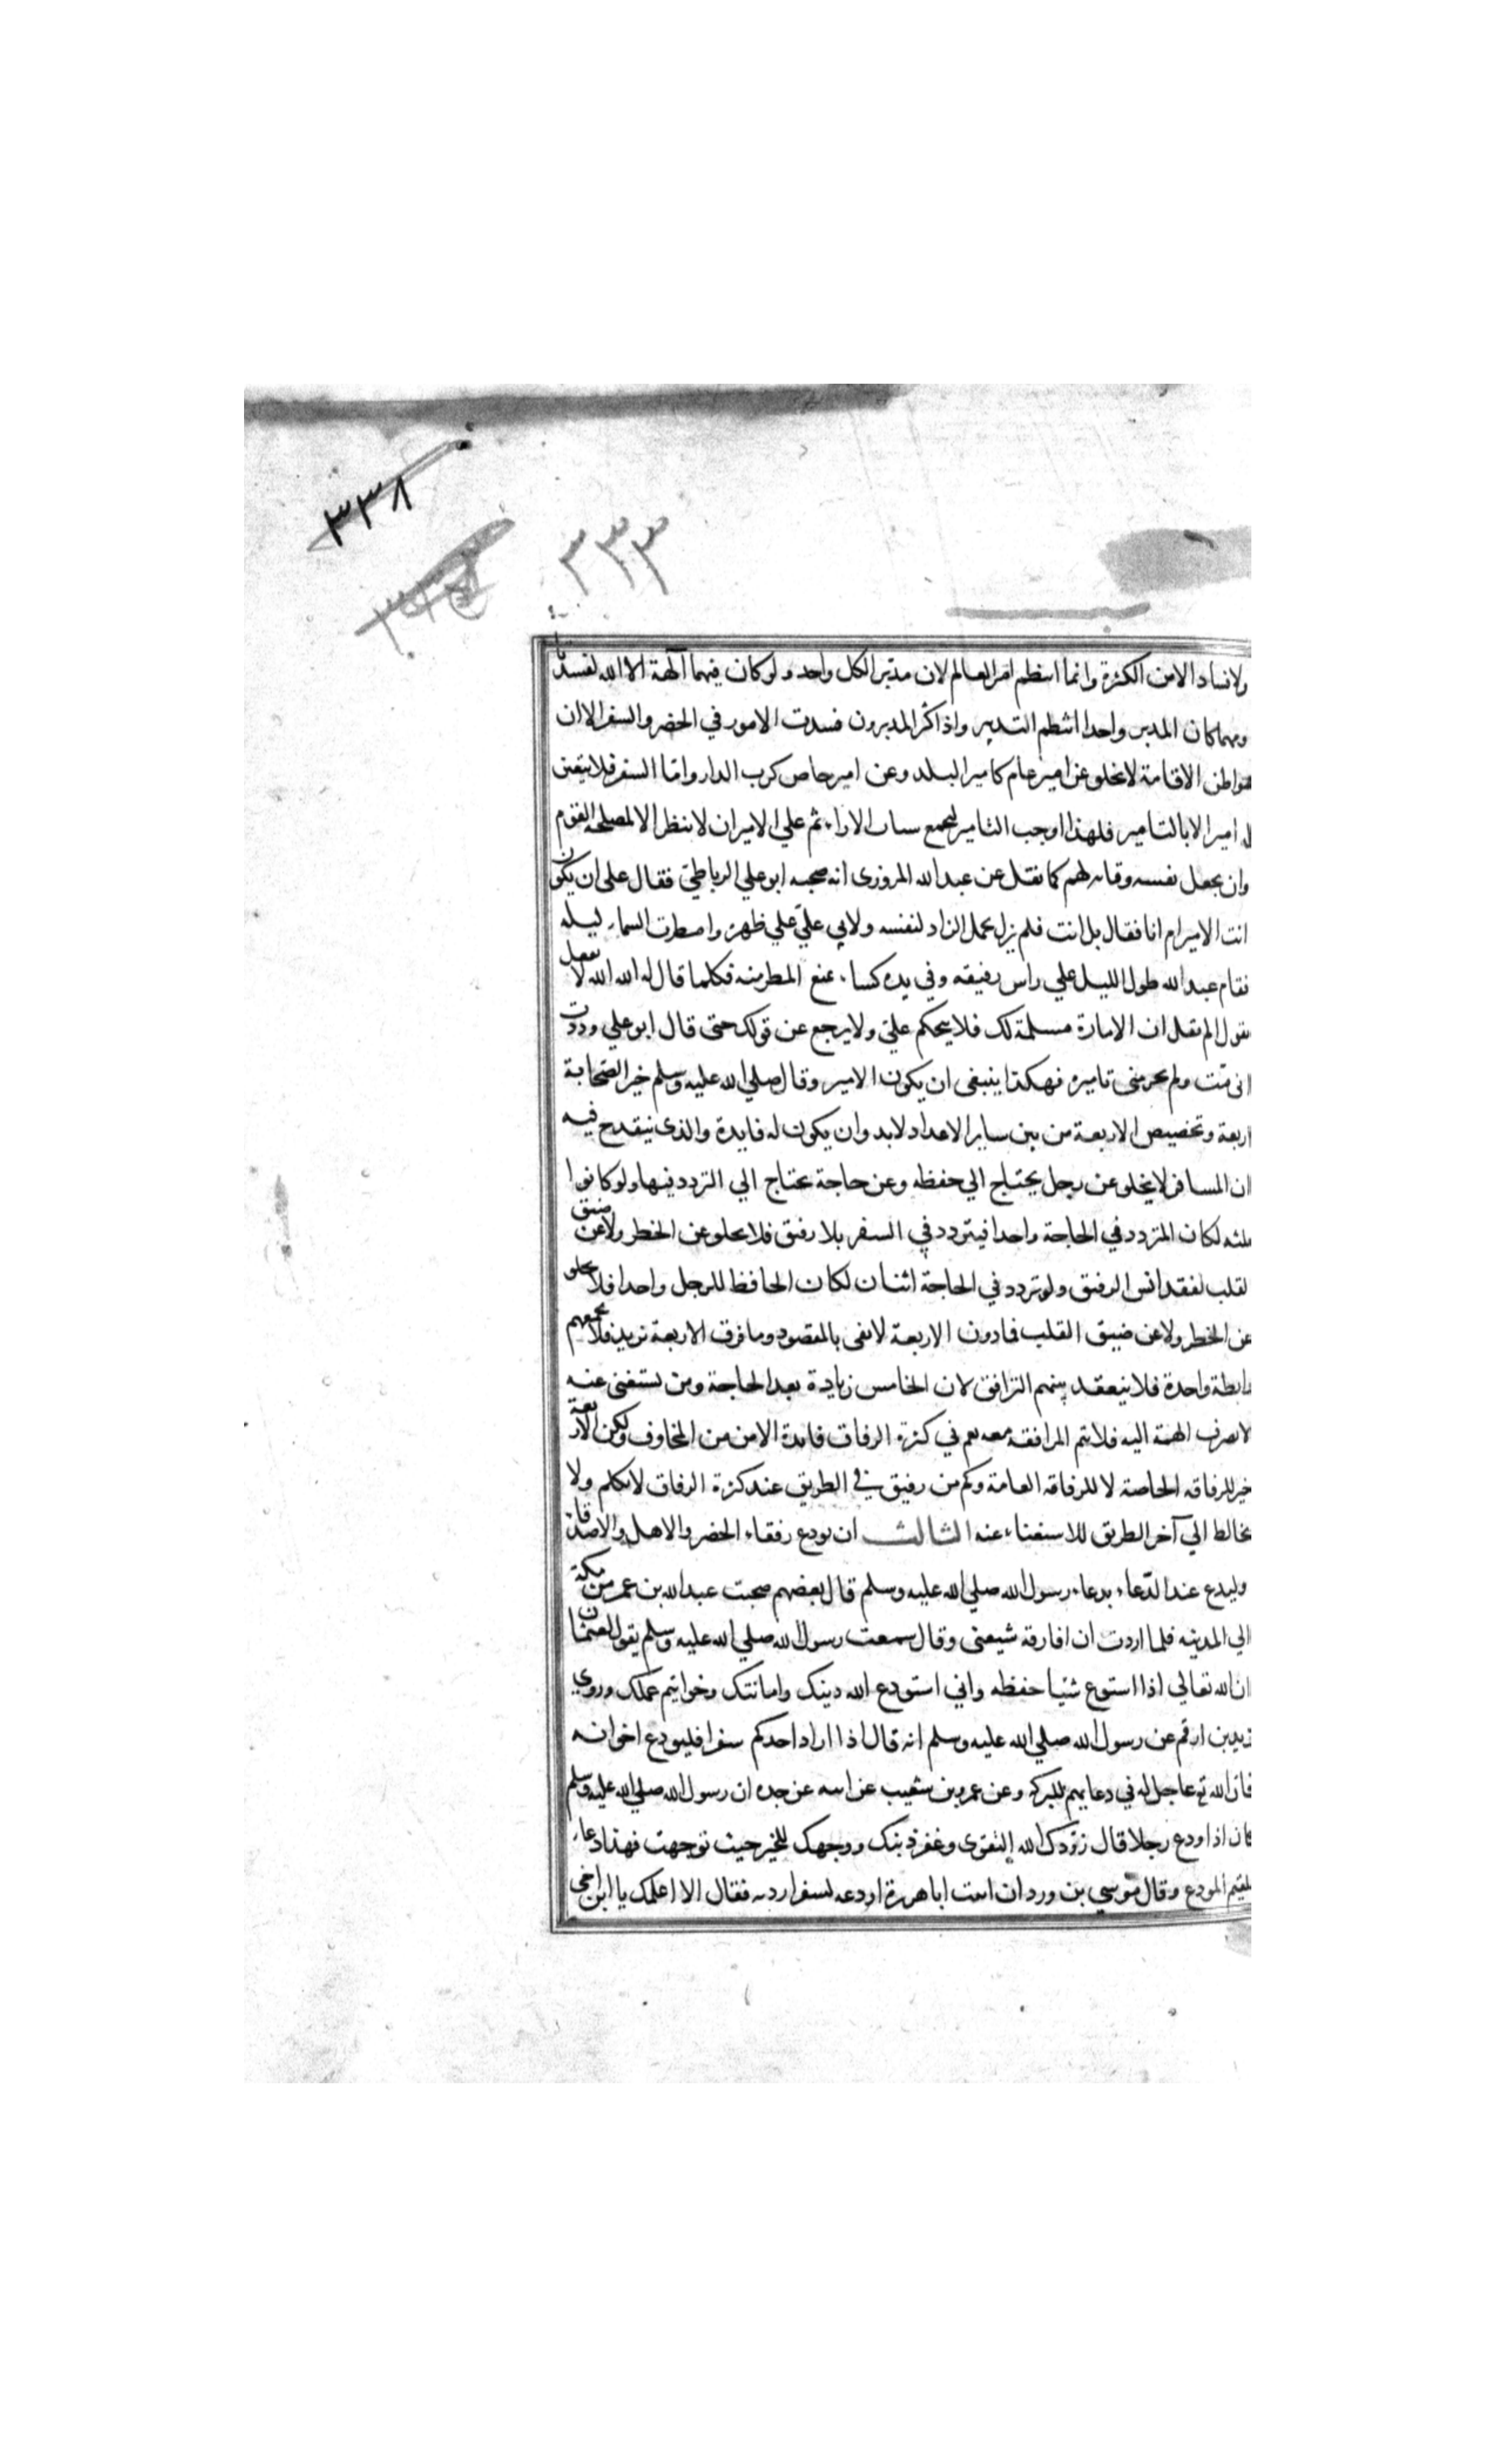 ٣٣٨
٣٣٣
ولا فساد الا من الكثرة وانما انتظم امر العالم لان مدبر الكل واحد ولو كان فيهما آلهة الا الله لفسدتا
ومهما كان المدبر واحدا انتظم التدبير واذا كثر المدبرون فسدت الامور في الحضر والسفر الا ان
مواطن الاقامة لا تخلو عن امير عام كامير البلد وعن امير خاص كرب الدار واما السفر فلا يتعين
له امير الا بالتامير فلهذا وجب التامير ليجمع ستات الاراء ثم علي الامير ان لا ينظر الا لمصلحة القوم
وان يجعل نفسه وقاية لهم كما نقل عن عبد الله المروزى انه صحبه ابو علي الرباطي فقال على ان يكون
انت الامير ام انا فقال بل انت فلم يزل يحمل الزاد لنفسه ولابي علي علي ظهره وامطرت السماء ليلة
فقام عبد الله طول الليل علي راس رفيقه وفي يده كساء يمنع المطر منه فكلما قال له الله الله لا تفعل
يقول الم تقل ان الامارة مسلمة لك فلا تتحكم علي ولا ترجع عن قولك حتى قال ابو علي وددت
انى مت ولم تؤمرنى تاميره فهكذا ينبغى ان يكون الامير وقال صلي الله عليه وسلم خير الصحابة
اربعة وتخصيص الاربعة من بين ساير الاعداد لابد وان يكون له فايدة والذى ينقدح فيه
ان المسافر لا يخلو عن رجل يحتاج الي حفظه وعن حاجة يحتاج الي التردد فيها ولو كانوا
ثلثة لكان المتردد في الحاجة واحدا فيتردد في السفر بلا رفيق فلا يخلو عن الخطر ولا عن ضيق
لقلب لفقد انس الرفيق ولو تردد في الحاجة اثنان لكان الحافظ للرجل واحدا فلا يخلو
عن الخطر ولا عن ضيق القلب فما دون الاربعة لا يفى بالمقصود وما فوق الاربعة تزيد فلا تجمعهم
رابطة واحدة فلا ينعقد بينهم الترافق لان الخامس زيادة بعد الحاجة ومن يستغنى عنه
لا تصرف الهمة اليه فلا تتم المرافقة معه نعم في كثرة الرفاق فايدة الامن من المخاوف ولكن الاربعة
خير للرفاقه الخاصة لا للرفاقه العامة وكم من رفيق في الطريق عند كثرة الرفاق لا يكلم ولا
يخالط الي آخر الطريق للاستغناء عنه الثالث ان يودع رفقاء الحضر والاهل والاصدقاء
وليدع عند الدعاء بدعاء رسول الله صلي الله عليه وسلم قال بعضهم صحبت عبد الله بن عمر من مكة
الي المدينه فلما اردت ان افارقه شيعنى وقال سمعت رسول الله صلي الله عليه وسلم يقول قال لقمان
ان الله تعالي اذا استودع شيئا حفظه واني استودع الله دينك وامانتك وخواتيم عملك وروي
زيد بن ارقم عن رسول الله صلي الله عليه وسلم انه قال اذا اراد احدكم سفرا فليودع اخوانه
فان الله تع جاعل له في دعايهم البركة وعن عمرو بن شعيب عن ابيه عن جده ان رسول الله صلي الله عليه وسلم
كان اذا ودع رجلا قال زودك الله التقوى وغفر ذنبك ووجهك للخير حيث توجهت فهذا دعاء
المقيم للمودع وقال موسي بن وردان اتيت ابا هريرة اودعه لسفر اردته فقال الا اعلمك يا ابن اخي